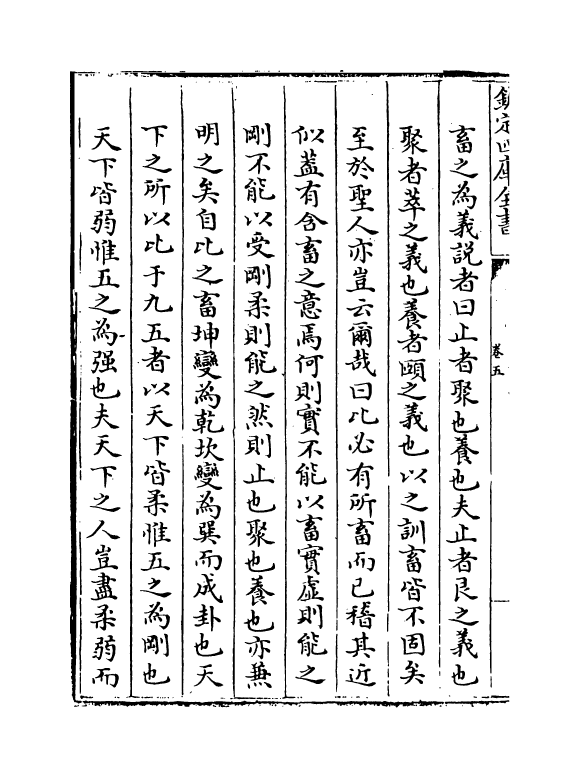 欽定四庫全書
卷五
畜之為義説者曰止者聚也養也夫止者艮之義也
聚者萃之義也養者頤之義也以之訓畜皆不固矣
至於聖人亦豈云爾哉曰比必有所畜而已稽其近
似葢有含畜之意焉何則實不能以畜實虛則能之
剛不能以受剛柔則能之然則止也聚也養也亦兼
明之矣自比之畜坤變為乾坎變為巽而成卦也天
下之所以比于九五者以天下皆柔惟五之為剛也
天下皆弱惟五之為强也夫天下之人豈盡柔弱而